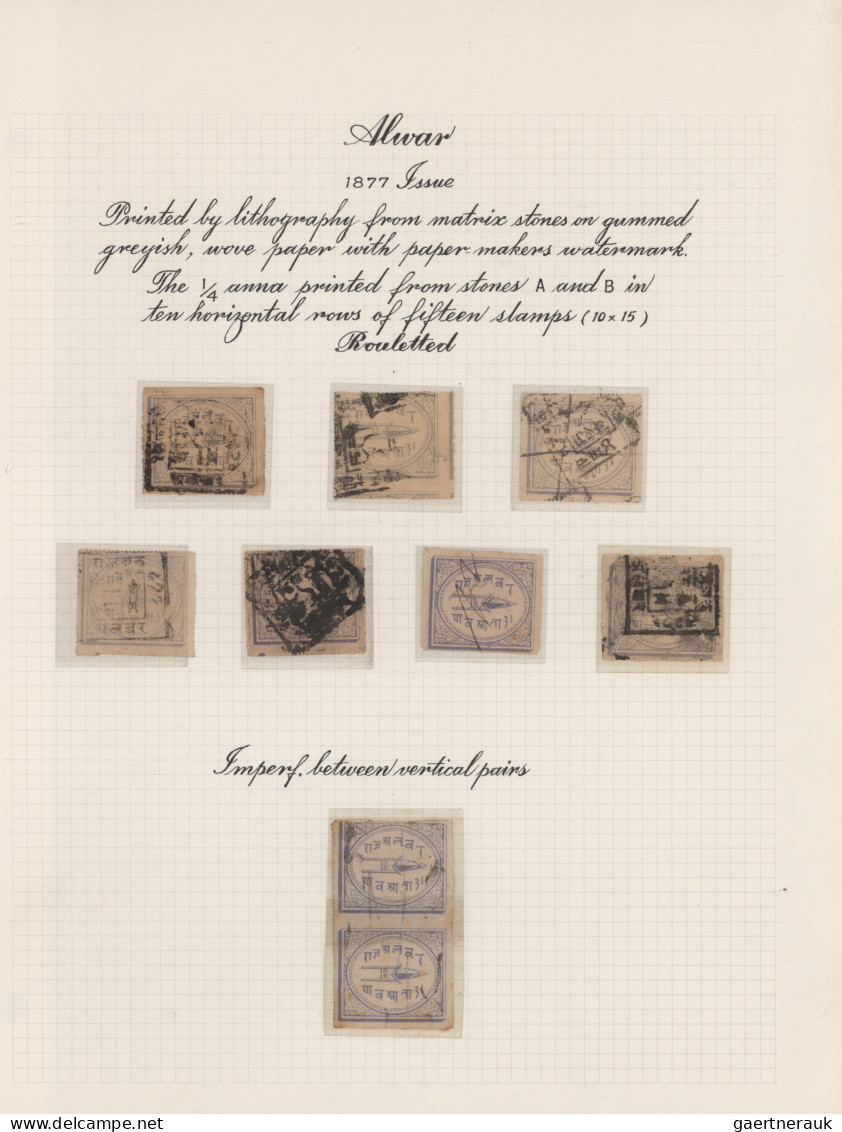 Alwar
1877 Issue
Printed by lithography from matrix stones on gummed
greyish, wove paper with paper makers watermark.
The 1/4 anna printed from stones A and B in
ten horizontal rows of fifteen stamps (10 x 15)
Rouletted
राजअलवर
पावआना
Imperf. between vertical pairs
राजअलवर
पावआना
राजअलवर
पावआना
www.delcampe.net
gaertnerauk